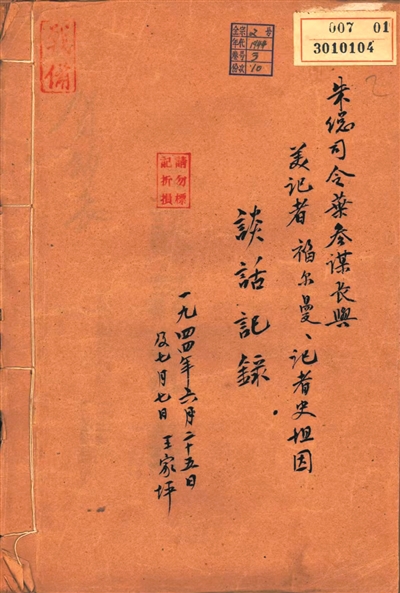 007 01
3010104
战备
全宗 2 号
年代 1944
卷号 3
10
2
請勿標
記折損
朱總司令葉參謀长與
美記者福尔曼、記者史坦因
談話記錄.
一九四四年六月二十五日
及七月七日 王家坪